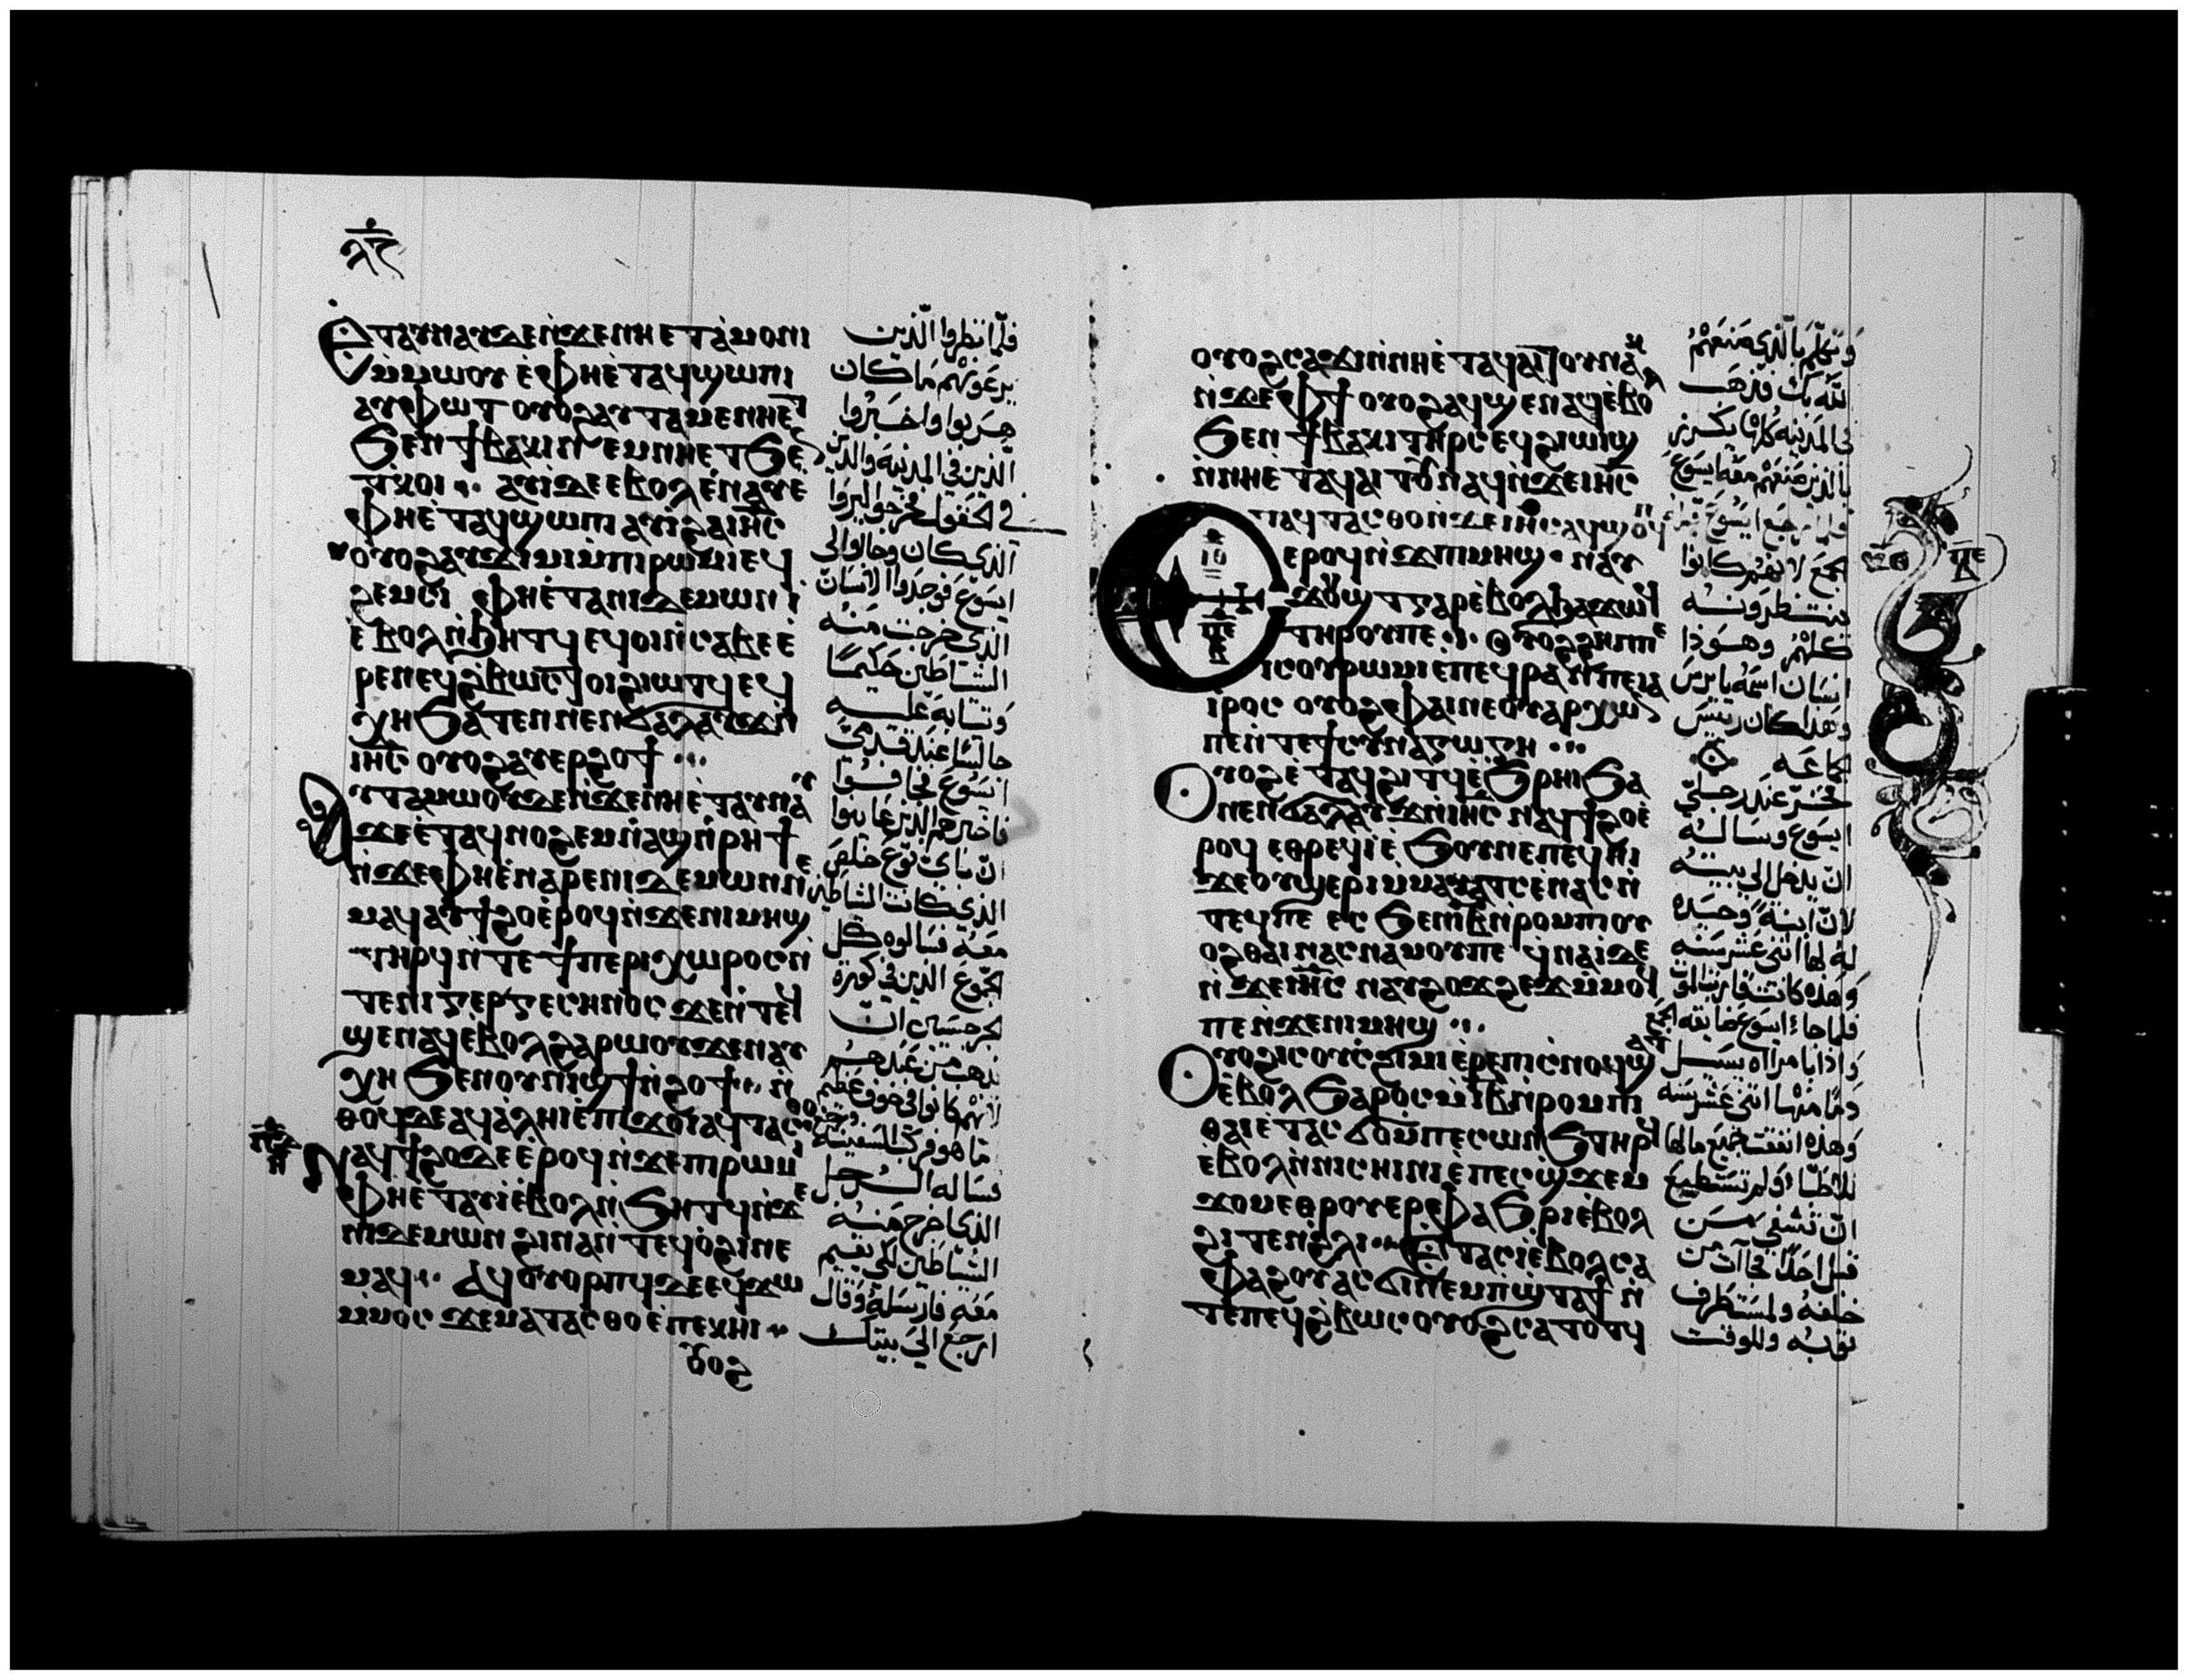 ⲉⲧⲁⲩⲛⲁⲩ ϫⲉ ⲛ̀ϫⲉ ⲛⲏ ⲉⲧⲁ̀ⲙⲟⲛⲓ
ⲙ̀ⲙⲱⲟⲩ ⲉ̀ⲫⲏⲉ̀ⲧⲁϥϣⲱⲡⲓ
ⲁⲩⲫⲱⲧ ⲟⲩⲟϩ ⲁⲩⲧⲁⲙⲉ ⲛⲏⲉⲧ
ϧⲉⲛ ϯⲃⲁⲕⲓ ⲛⲉⲙ ⲛⲏⲉⲧϧⲉⲛ
ⲓ̀ⲟϩⲓ ⲁⲩⲓ̀ ⲇⲉ ⲉⲃⲟⲗ ⲉ̀ⲛⲁⲩ ⲉ
ⲫⲏⲉ̀ⲧⲁϥϣⲱⲡⲓ ⲁⲩⲓ̀ ϩⲁ ⲓⲏ̅ⲥ̅
ⲟⲩⲟϩ ⲁⲩϫⲓⲙⲓ ⲙ̀ⲡⲓⲣⲱⲙⲓ ⲉϥ
ϩⲉⲙⲥⲓ ⲫⲏⲉ̀ⲧⲁ ⲛⲓⲇⲉⲙⲱⲛ ⲓ̀
ⲉ̀ⲃⲟⲗ ⲛ̀ϧⲏⲧϥ ⲉϥⲟⲓ ⲛ̀ⲥⲁⲃⲉ ⲉ̀
ⲣⲉ ⲛⲉϥϩⲃⲱⲥ ⲧⲟⲓ ϩⲓⲱⲧϥ ⲉϥ
ⲭⲏ ϧⲁⲧⲉⲛ ⲛⲉⲛϭⲁⲗⲁⲩϫ ⲛ̀
ⲓⲏ̅ⲥ̅ ⲟⲩⲟϩ ⲁⲩⲉⲣϩⲟϯ
ⲁⲩⲧⲁⲙⲱⲟⲩ ⲇⲉ ⲛ̀ϫⲉ ⲛⲏⲉ̀ⲧⲁⲩⲛⲁⲩ
ϫⲉ ⲉ̀ⲧⲁϥⲛⲟϩⲉⲙ ⲛ̀ⲁϣ ⲛ̀ⲣⲏϯ
ⲛ̀ϫⲉ ⲫⲏⲉ̀ⲛⲁⲣⲉ ⲛⲓⲇⲉⲙⲱⲛ ⲛⲉ
ⲙⲁϥ ⲁⲩϯϩⲟ ⲉ̀ⲣⲟϥ ⲛ̀ϫⲉ ⲛⲓⲙⲏϣ
ⲧⲏⲣϥ ⲛ̀ⲧⲉ ϯⲡⲉⲣⲓⲭⲱⲣⲟⲥ ⲛ̀
ⲧⲉ ⲛⲓⲅⲉⲣⲅⲉⲥⲏⲛⲟⲥ ϫⲉ ⲛ̀ⲧⲉϥ
ϣⲉⲛⲁϥ ⲉ̀ⲃⲟⲗ ϩⲁⲣⲱⲟⲩ ϫⲉ ⲛⲁⲩ
ⲭⲏ ϧⲉⲛ ⲟⲩⲛⲓϣϯ ⲛ̀ϩⲟϯ ⲛ̀
ⲑⲟϥ ⲇⲉ ⲁϥⲁ̀ⲗⲏⲓ ⲉ̀ⲡϫⲟⲓ ⲁϥⲧⲁⲥⲑⲟ
ⲛⲁϥϯϩⲟ ⲇⲉ ⲉ̀ⲣⲟϥ ⲛ̀ϫⲉ ⲡⲓⲣⲱⲙⲓ
ⲫⲏⲉ̀ⲧⲁⲩⲓ̀ ⲉ̀ⲃⲟⲗ ⲛ̀ϧⲏⲧϥ ⲛ̀ϫⲉ
ⲛⲓⲇⲉⲙⲱⲛ ϩⲓⲛⲁ ⲛ̀ⲧⲉϥⲟ̀ϩⲓ ⲛⲉ
ⲙⲁϥ ⲁϥⲟⲩⲟⲣⲡϥ ⲇⲉ ⲉϥϫⲱ
ⲙ̀ⲙⲟⲥ ϫⲉ ⲙⲁⲧⲁⲥⲑⲟ ⲉ̀ⲡⲉⲕⲏⲓ
ⲟⲩⲟϩ
فلما نظروا الذين
يرعونهم ما كان
هربوا واخبروا
الذين في المدينه والذين
في الحقول فخرجوا ليروا
الذي كان وجاوا الى
ايسوع فوجدوا الانسان
الذي خرجت منه
الشياطين حكيمًا
وثيابه عليه
جالسًا عند قدمي
ايسوع فخافوا
فاخبرهم الذين عاينوا
ان باي نوع خلص
الذي كانت الشياطين
معه فسالوه كل
الجموع الذين في كورة
الجرجسيين ان
يذهب من عندهم
لانهم كانوا في خوف عظيم
فاما هو فركب السفينة ورجع
فساله الرجل
الذي خرج منه
الشياطين لكي يقيم
معه فارسله وقال
ارجع الى بيتك
ⲟⲩⲟϩ ⲥⲁϫⲓ ⲛ̀ⲛⲏⲉ̀ⲧⲁϥⲁⲓⲧⲟⲩ ⲛⲁⲕ
ⲛ̀ϫⲉ ⲫϯ ⲟⲩⲟϩ ⲁϥϣⲉⲛⲁϥ ⲉ̀ⲃⲟⲗ
ϧⲉⲛ ϯⲃⲁⲕⲓ ⲧⲏⲣⲥ ⲉϥϩⲓⲱⲓϣ
ⲛ̀ⲛⲏⲉ̀ⲧⲁϥⲁⲓⲧⲟⲩ ⲛⲁϥ ⲛ̀ϫⲉ ⲓⲏ̅ⲥ̅
ⲉⲧⲁϥⲧⲁⲥⲑⲟ ⲛ̀ϫⲉ ⲓⲏ̅ⲥ̅ ⲁϥϣⲟⲡϥ
ⲉⲣⲟϥ ⲛ̀ϫⲉ ⲡⲓⲙⲏϣ ⲛⲁⲩ
ϫⲟⲩϣⲧ ⲅⲁⲣ ⲉ̀ⲃⲟⲗ ϧⲁϫⲱϥ
ⲧⲏⲣⲟⲩ ⲡⲉ ⲟⲩⲟϩ ϩⲏⲡⲡⲉ
ⲓⲥ ⲟⲩⲣⲱⲙⲓ ⲉ̀ⲡⲉϥⲣⲁⲛ ⲡⲉ ⲓⲁ
ⲓ̀ⲣⲟⲥ ⲟⲩⲟϩ ⲫⲁⲓ ⲛⲉ ⲟⲩⲁⲣⲭⲱⲛ
ⲡⲉ ⲛ̀ⲧⲉ ϯⲥⲩⲛⲁⲅⲱⲅⲏ
ⲟⲩⲟϩ ⲉ̀ⲧⲁϥϩⲓⲧϥ ⲉ̀ϧⲣⲏⲓ ϧⲁ
ⲛⲉⲛϭⲁⲗⲁⲩϫ ⲛ̀ⲓⲏ̅ⲥ̅ ⲛⲁϥϯϩⲟ ⲉ̀
ⲣⲟϥ ⲉⲑⲣⲉϥⲓ̀ ⲉ̀ϧⲟⲩⲛ ⲉ̀ⲡⲉϥⲏⲓ
ϫⲉ ⲟⲩϣⲉⲣⲓ ⲙ̀ⲙⲁⲩⲁⲧⲥ ⲉ̀ⲛⲁⲥ ⲛ̀
ⲧⲉϥ ⲡⲉ ⲉⲥ ϧⲉⲛ ⲓ̅ⲃ̅ ⲛ̀ⲣⲟⲙⲡⲓ ⲟⲩ
ⲟϩ ⲑⲁⲓ ⲛⲁⲥⲛⲁⲙⲟⲩ ⲡⲉ ϥⲛⲁⲓ̀ ⲇⲉ
ⲛ̀ϫⲉ ⲓⲏ̅ⲥ̅ ⲛⲁⲩϩⲟϫϩⲉϫ ⲙ̀ⲙⲟϥ
ⲡⲉ ⲛ̀ϫⲉ ⲛⲓⲙⲏϣ
ⲟⲩⲟϩ ⲓⲥ ⲟⲩⲥϩⲓⲙⲓ ⲉ̀ⲣⲉ ⲡⲓⲥ̀ⲛⲟϥ ϣⲁⲧ
ⲉ̀ⲃⲟⲗ ϧⲁⲣⲟⲥ ⲙ̀ⲓ̅ⲃ̅ ⲛ̀ⲣⲟⲙⲡⲓ
ⲑⲁⲓ ⲉ̀ⲧⲁⲥϭⲟ ⲙ̀ⲡⲉⲥⲱⲛϧ ⲧⲏⲣϥ
ⲉ̀ⲃⲟⲗ ⲛ̀ⲛⲓⲥⲏⲓⲛⲓ ⲉ̀ⲡⲉⲥϣϫⲉⲙ
ϫⲟⲙ ⲉⲑⲣⲟⲩⲉⲣⲫⲁϧⲣⲓ ⲉ̀ⲃⲟⲗ
ϩⲓⲧⲉⲛ ϩ̀ⲗⲓ ⲉⲧⲁⲥⲓ̀ ⲉ̀ⲃⲟⲗ ⲥⲁ
ⲫⲁϩⲟⲩ ⲁⲥϭⲓ ⲛⲉⲙ ⲡ̀ϣⲧⲁϯ ⲛ̀
ⲧⲉ ⲡⲉϥϩ̀ⲃⲱⲥ ⲟⲩⲟϩ ⲥⲁⲧⲟⲧϥ
وتكلم بالذي صنعهم
الله بك فذهب
في المدينه كلها يكرز
بالذين صنعهم معه ايسوع
ولما رجع ايسوع قبله
الجمع لانهم كانوا
ينتظرونه
كلهم وهوذا
انسان اسمه يايرس
وهذا كان رييس
جماعه
فخر عند رجلي
ايسوع وساله
ان يدخل الى بيته
لان ابنة وحيده
له لها اثني عشر سنه
وهذه كانت قاربت الموت
فلما جاء ايسوع ضايقه الجمع
واذا بامراه يسيل
دمًا منها اثني عشر سنه
وهذه انفقت جميع مالها
للاطبّا ولم تستطيع
ان تشفى من
قبل احد فجاءت من
خلفه ولمست طرف
ثوبه وللوقت